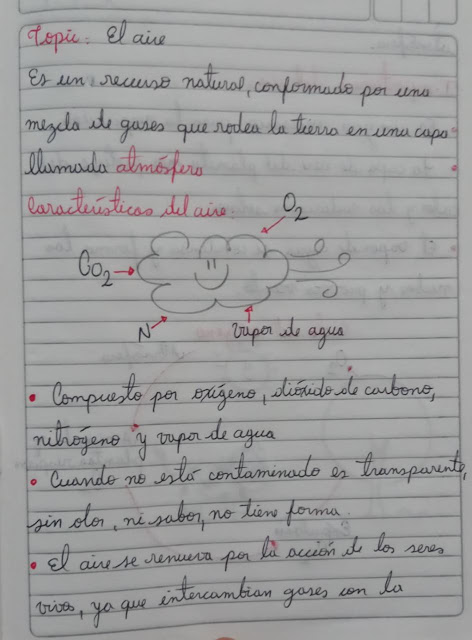 Topic: El aire
Es un recurso natural, conformado por una
mezcla de gases que rodea la tierra en una capa
llamada atmósfera
Características del aire:
O2
CO2
N
Vapor de agua
• Compuesto por oxígeno, dióxido de carbono,
nitrógeno y vapor de agua
• Cuando no está contaminado es transparente,
sin olor, ni sabor, no tiene forma.
• El aire se renueva por la acción de los seres
vivos, ya que intercambian gases con la